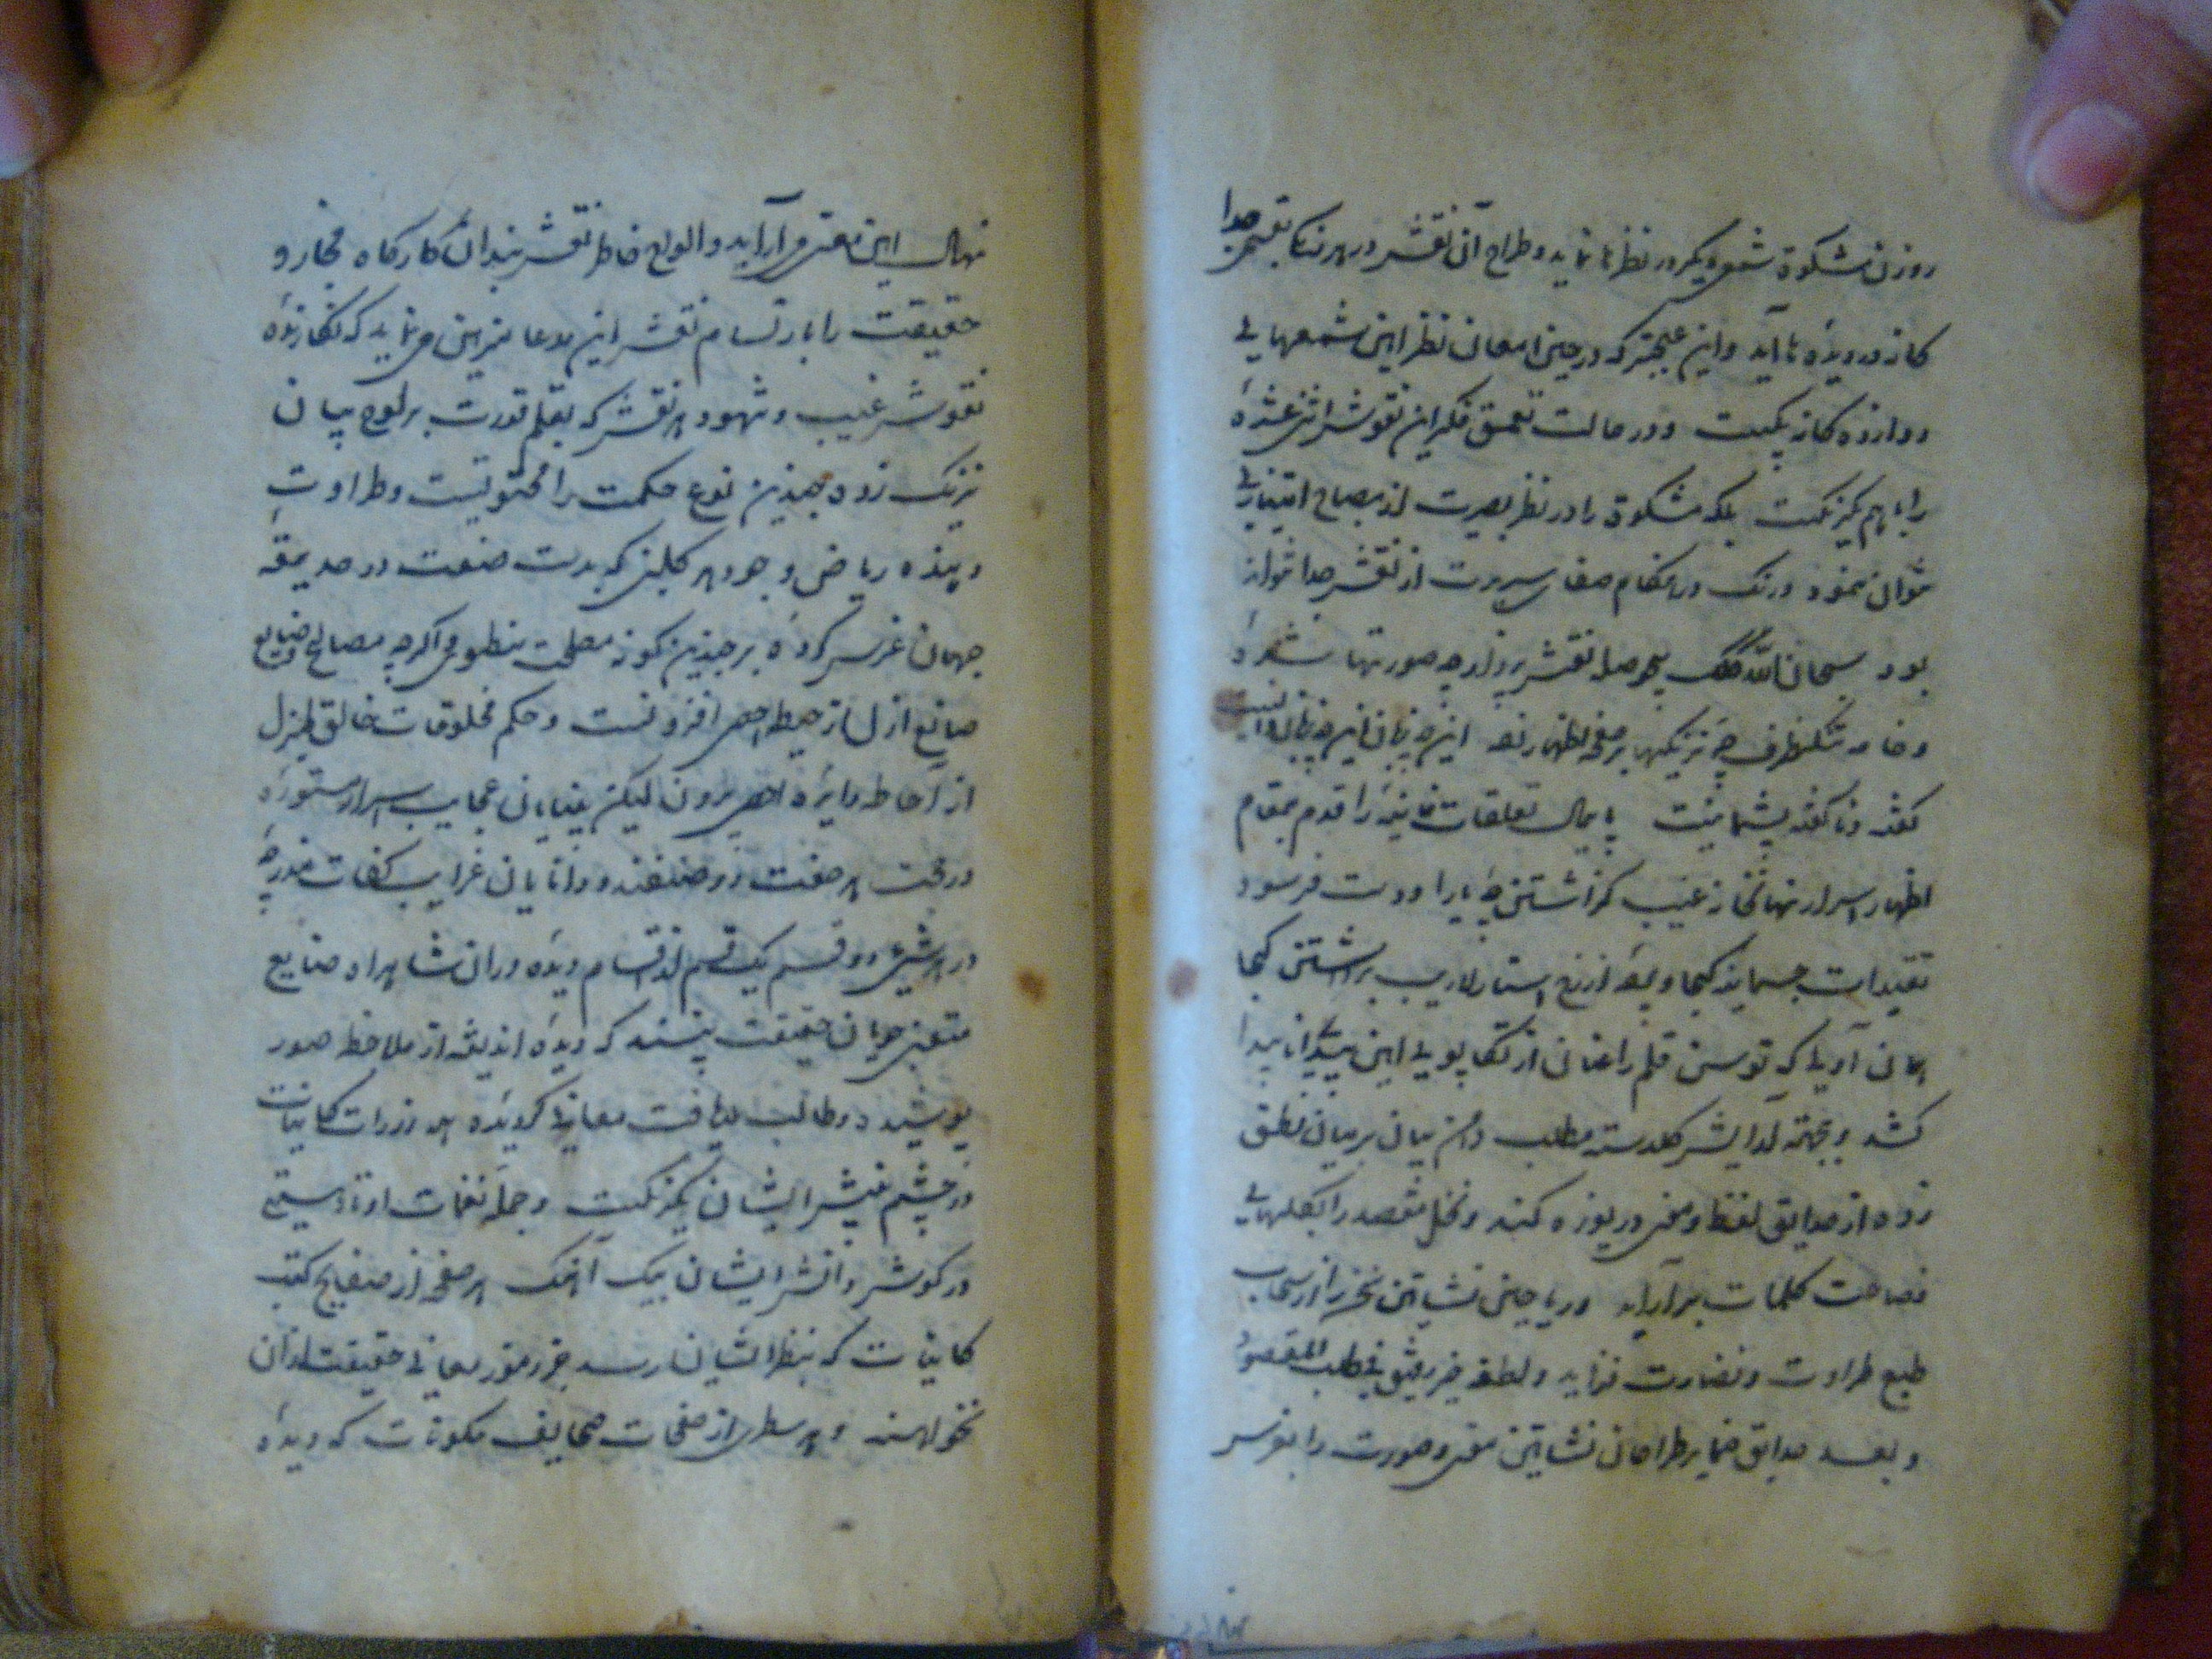 روزن مشکوة شمعی دیگر در نظرها نماید و طراح آن نقش در هر نگاه بقسمی جدا
کانه در دیده ها آید و این عجبتر که در عین امعان نظر این شمعهای
دوازده کانه یکیست و در حالت تعمق فکر این نقوش اثنی عشره
را با هم یکرنگیست بلکه مشکوة را در نظر بصیرت از مصباح امتیازی
نتوان نمود و رنک در هنکام صفای سیرت از نقش جدا نتواند
بود سبحان الله کلک نقش پرداز چه صورتها
و خامه شنکرف چه نیرنکها بر صفحه اظهار این چه زبان این چه بیان
کفته و ناکفته پشیمانیست پایمال تعلقات را قدم بمقام
اظهار اسرار نهانخانه غیب کذاشتن چه یارا و دست فرسود
تقیدات جسمانیه کجا و از رخ استار لاریب برداشتن کجا
همان اولی که توسن قلم را عنان از تکاپوی این بیدای ناپیدا
کشد و بجهة آرایش کلدسته مطلب دامن بیان بر میان نطق
زده از حدایق لفظ و معنی دریوزه کند و نخل مقصد را بکلهای
فصاحت کلمات برآراید و ریاحین نشاتین سخن را از سحاب
طبع طراوت و نضارت فزاید و لطفه خیر رفیق فی طلب المقصود
و بعد حدایق ضمایر طراحان نشاتین معنی و صورت را بغرس
نهال این معنی می آراید و الواح خاطر نقش بندان کارکاه مجاز و
حقیقت را بارتسام نقش این مدعا مزین می نماید که نکارنده
نقوش غیب و شهود هر نقش که بقلم قدرت بر لوح بیان
نیرنک زده بچندین نوع حکمت را محتویست و طراوت
دهنده ریاض وجود هر کلبن که بدست صنعت در حدیقه
جهان غرس کرده بر چندین کونه مصلحت منطوی اکرچه مصالح صنایع
صانع ازل از حیطه حصر افزونست و حکم مخلوقات خالق لم یزل
از احاطه دایره احصی بیرون لیکن بینایان عجایب اسرار مستوره
در تحت هر صفت دو صنفند و دانایان غرایب مندرجه
در هر شیئی دو قسم یک قسم از اقسام دیده وران شاهراه صنایع
حقیقت بینند که دیده اندیشه از ملاحظه صور
پوشیده و طالب دریافت معانی کردیده همه ذرات کاینات
در چشم بینش ایشان یکرنکیست و جمله نغمات
در کوش دانش ایشان بیک آهنک هر صفحه از صفایح کتب
کاینات که بنظر ایشان رسد جز رموز معانی حقیقت از آن
نخواهند و هر سطری از صفحات صحایف مکونات که دیده